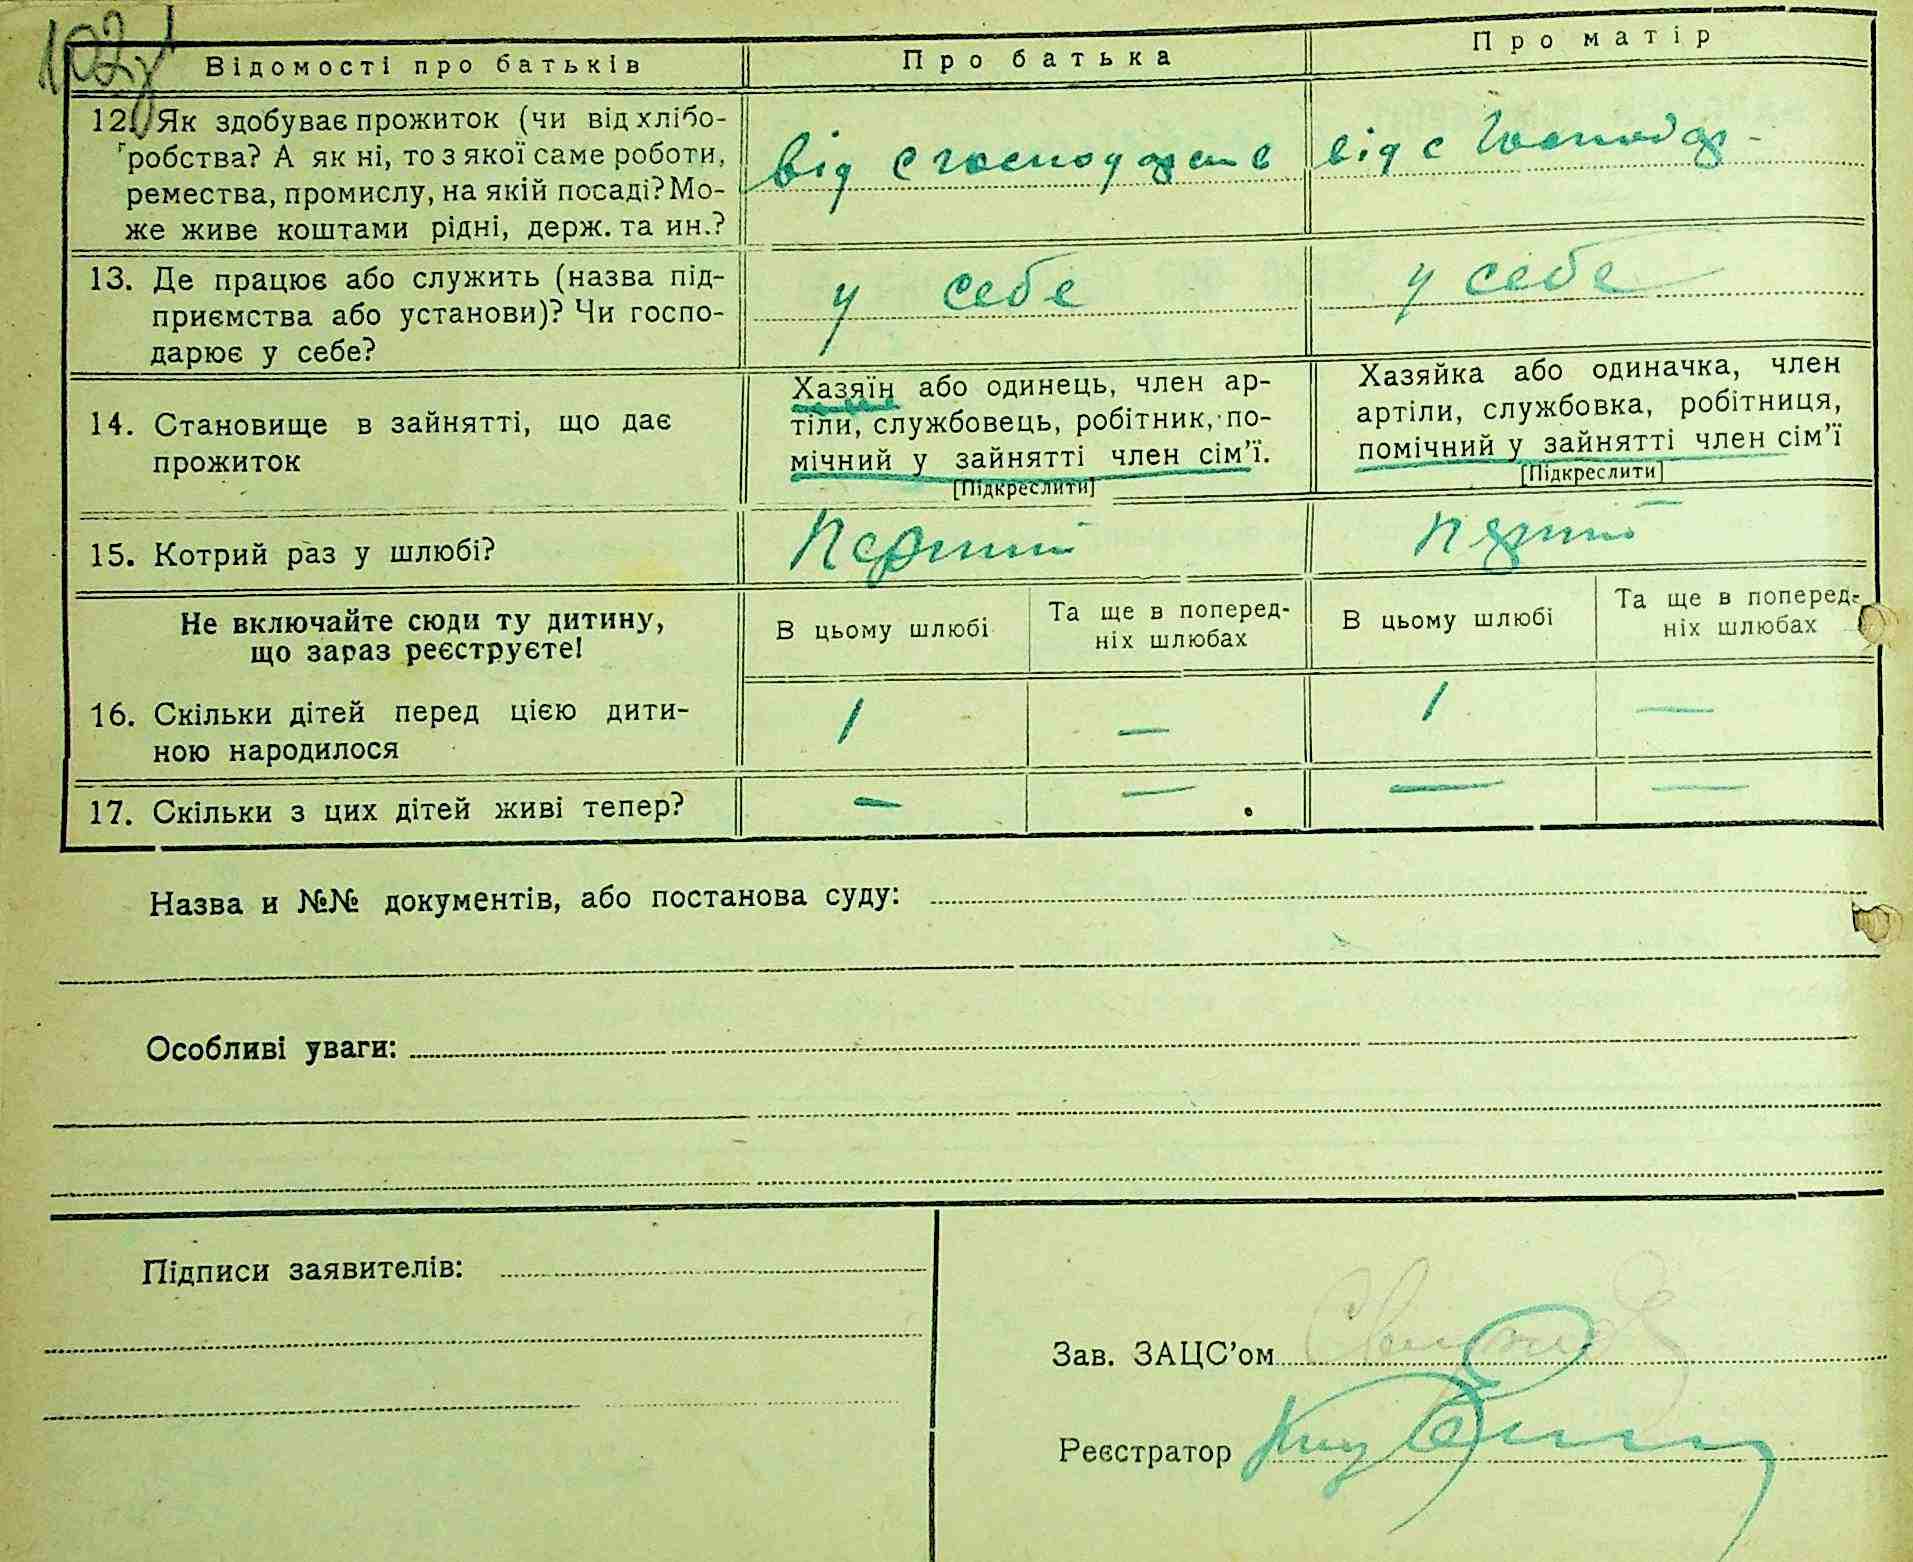 Відомості про батьків Про батька Про матір
12. Як здобуває прожиток (чи від хлібо-
робства? А як ні, то з якої саме роботи,
ремества, промислу, на якій посаді? Мо-
же живе коштами рідні, держ. та ин.?
від с господарств від с Господар-
13. Де працює або служить (назва під-
приємства або установи)? Чи госпо-
дарює у себе?
у себе у себе
14. Становище в зайнятті, що дає
прожиток
Хазяїн або одинець, член ар-
тіли, службовець, робітник, по-
мічний у зайнятті член сім'ї.
[Підкреслити]
Хазяйка або одиначка, член
артіли, службовка, робітниця,
помічний у зайнятті член сім'ї
[Підкреслити]
15. Котрий раз у шлюбі? Перший перший
Не включайте сюди ту дитину,
що зараз реєструєте!
В цьому шлюбі
Та ще в поперед-
ніх шлюбах
В цьому шлюбі
Та ще в поперед-
ніх шлюбах
16. Скільки дітей перед цією дити-
ною народилося
1 — 1 —
17. Скільки з цих дітей живі тепер? — — — —
Назва и №№ документів, або постанова суду:
Особливі уваги:
Підписи заявителів:
Зав. ЗАЦС'ом
Реєстратор